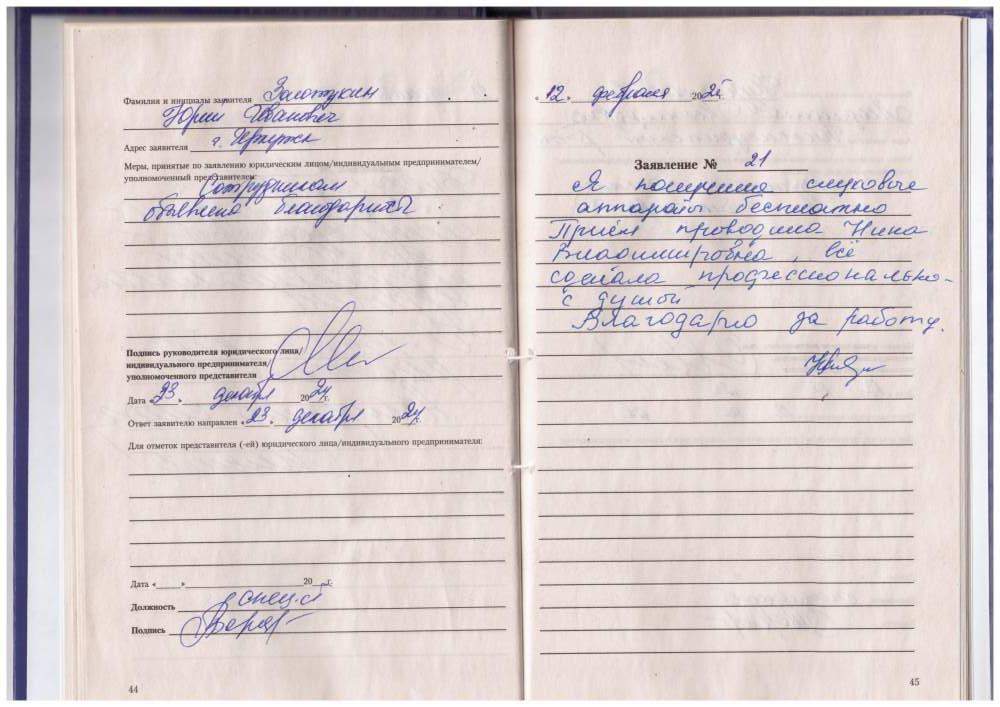 Фамилия и инициалы заявителя Золотухин
Юрий Иванович
Адрес заявителя г. Иркутск
Меры, принятые по заявлению юридическим лицом/индивидуальным предпринимателем/
уполномоченный представителем:
Сотрудникам
объявлена благодарность
Подпись руководителя юридического лица/
индивидуального предпринимателя/
уполномоченного представителя
Дата «23» декабря 2024г.
Ответ заявителю направлен «23» декабря 2024г.
Для отметок представителя (-ей) юридического лица/индивидуального предпринимателя:
Дата «____» 20__г.
Должность
Подпись
44
«12» февраля 2025
Заявление № 21
Я получила слуховые
аппараты бесплатно
Приём проводила Нина
Владимировна, всё
сделала профессионально-
с душой
Благодарю за работу.
45